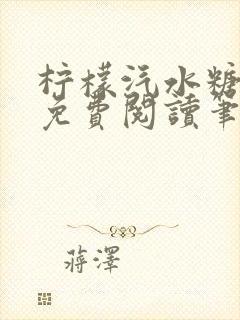 柠檬汽水糖
免費閱讀筆
蔣澤